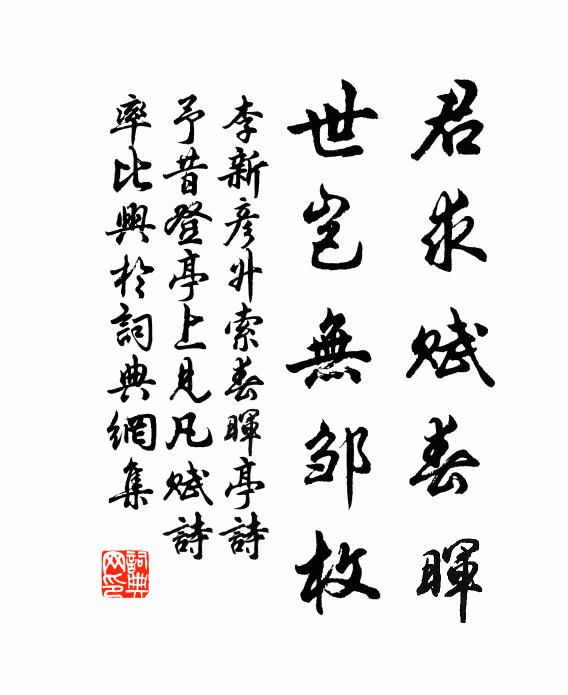 君求赋春暉
世豈無邹枚
李新彦升索春暉亭詩
予昔登亭上見凡赋詩
率比興於詞典網集
詞典网印